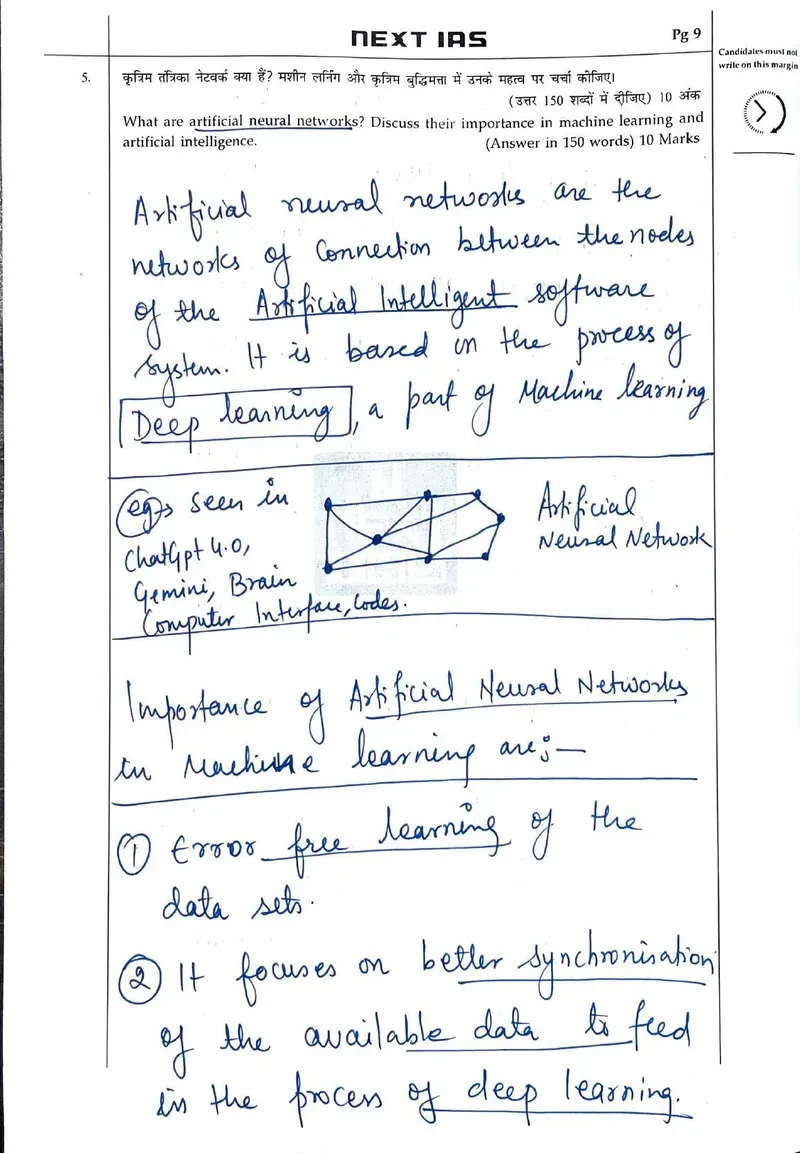 NEXT IAS
Pg 9
Candidates must not
write on this margin
5. कृत्रिम तंत्रिका नेटवर्क क्या हैं? मशीन लर्निंग और कृत्रिम बुद्धिमत्ता में उनके महत्व पर चर्चा कीजिए।
(उत्तर 150 शब्दों में दीजिए) 10 अंक
What are artificial neural networks? Discuss their importance in machine learning and
artificial intelligence. (Answer in 150 words) 10 Marks
Artificial neural networks are the
networks of connection between the nodes
of the Artificial Intelligent software
system. It is based on the process of
Deep learning, a part of Machine learning
eg → Seen in
ChatGpt 4.0,
Gemini, Brain
Computer Interface, Codes.
Artificial
Neural Network
Importance of Artificial Neural Networks
in Machine learning are; —
① Error free learning of the
data sets.
② It focuses on better synchronisation
of the available data to feed
in the process of deep learning.